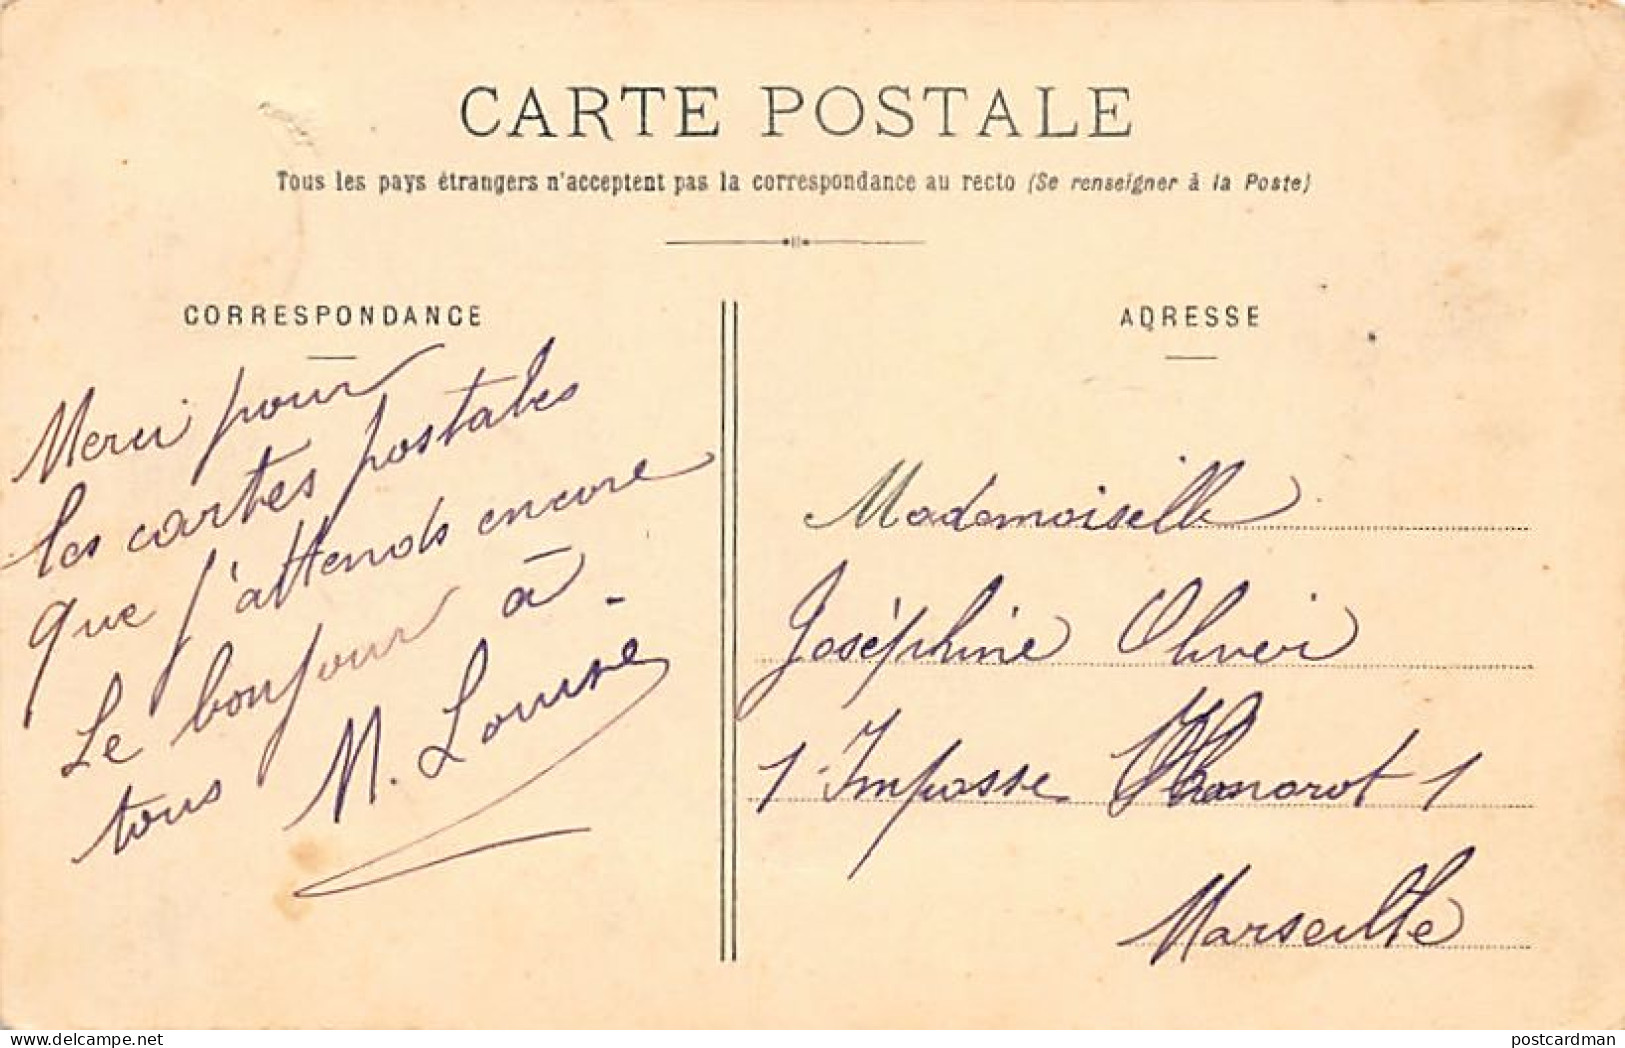 CARTE POSTALE
Tous les pays étrangers n'acceptent pas la correspondance au recto (Se renseigner à la Poste)
CORRESPONDANCE
Merci pour
les cartes postales
que j'attends encore
Le bonjour à
tous M. Louise
ADRESSE
Mademoiselle
Joséphine Oliveri
1 Impasse 1
Marseille
postcardman